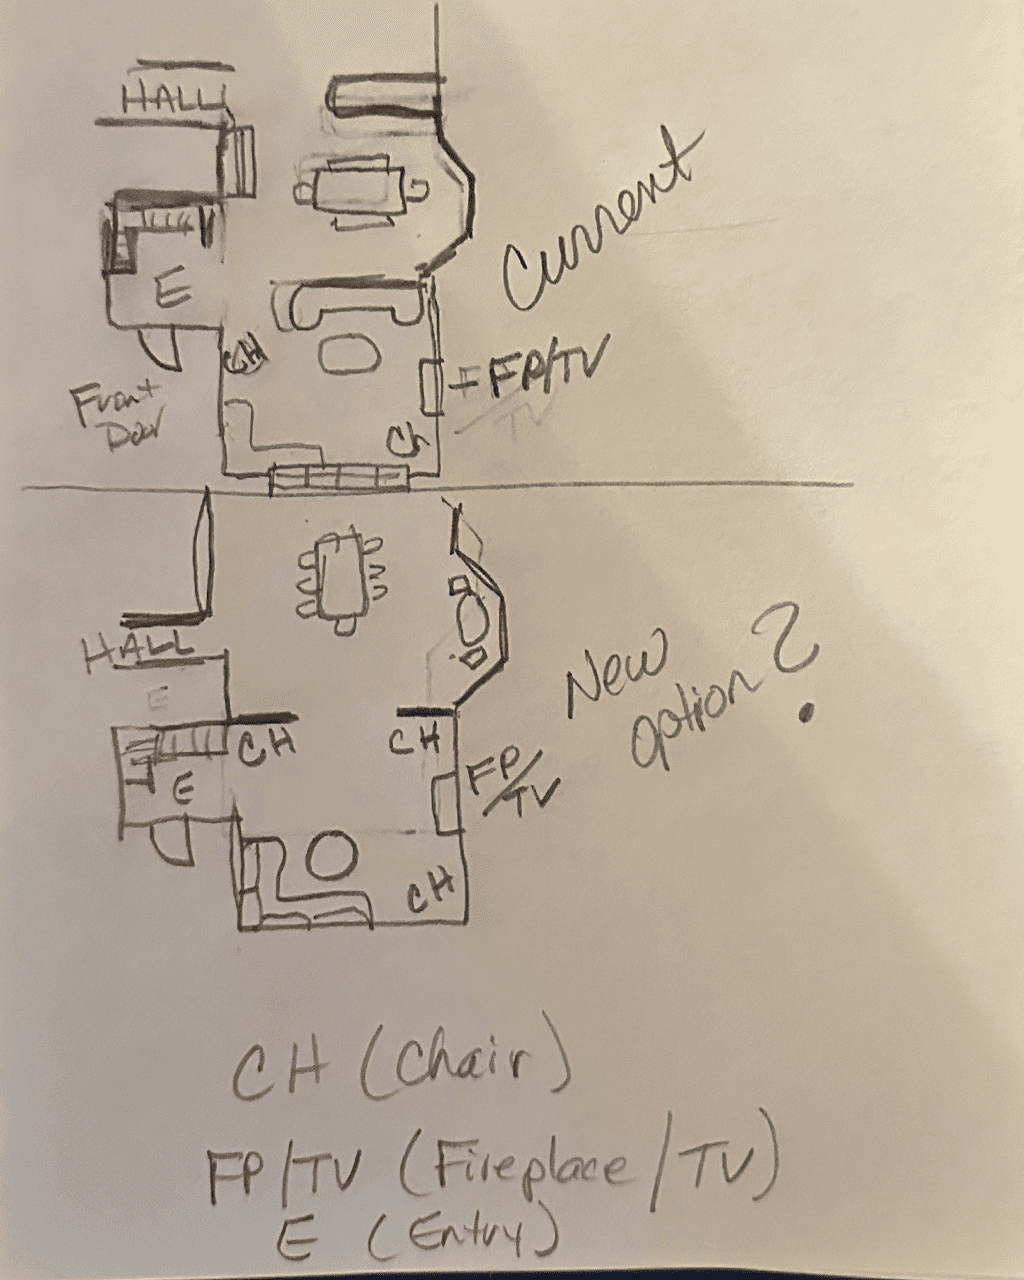 HALL
Current
E
CH
= FP/TV
TV
Front
Door
Ch
HALL
E
New
option?
CH
CH
FP/
TV
E
CH
CH (Chair)
FP/TV (Fireplace/TV)
E (Entry)